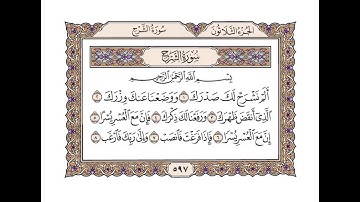 الجزء الثلاثون سورة الشرح
سورة الشرح
بسم الله الرحمن الرحيم
أَلَمْ نَشْرَحْ لَكَ صَدْرَكَ ١ وَوَضَعْنَا عَنكَ وِزْرَكَ ٢
الَّذِي أَنقَضَ ظَهْرَكَ ٣ وَرَفَعْنَا لَكَ ذِكْرَكَ ٤ فَإِنَّ مَعَ الْعُسْرِ يُسْرًا ٥
إِنَّ مَعَ الْعُسْرِ يُسْرًا ٦ فَإِذَا فَرَغْتَ فَانصَبْ ٧ وَإِلَىٰ رَبِّكَ فَارْغَب ٨
٥٩٧